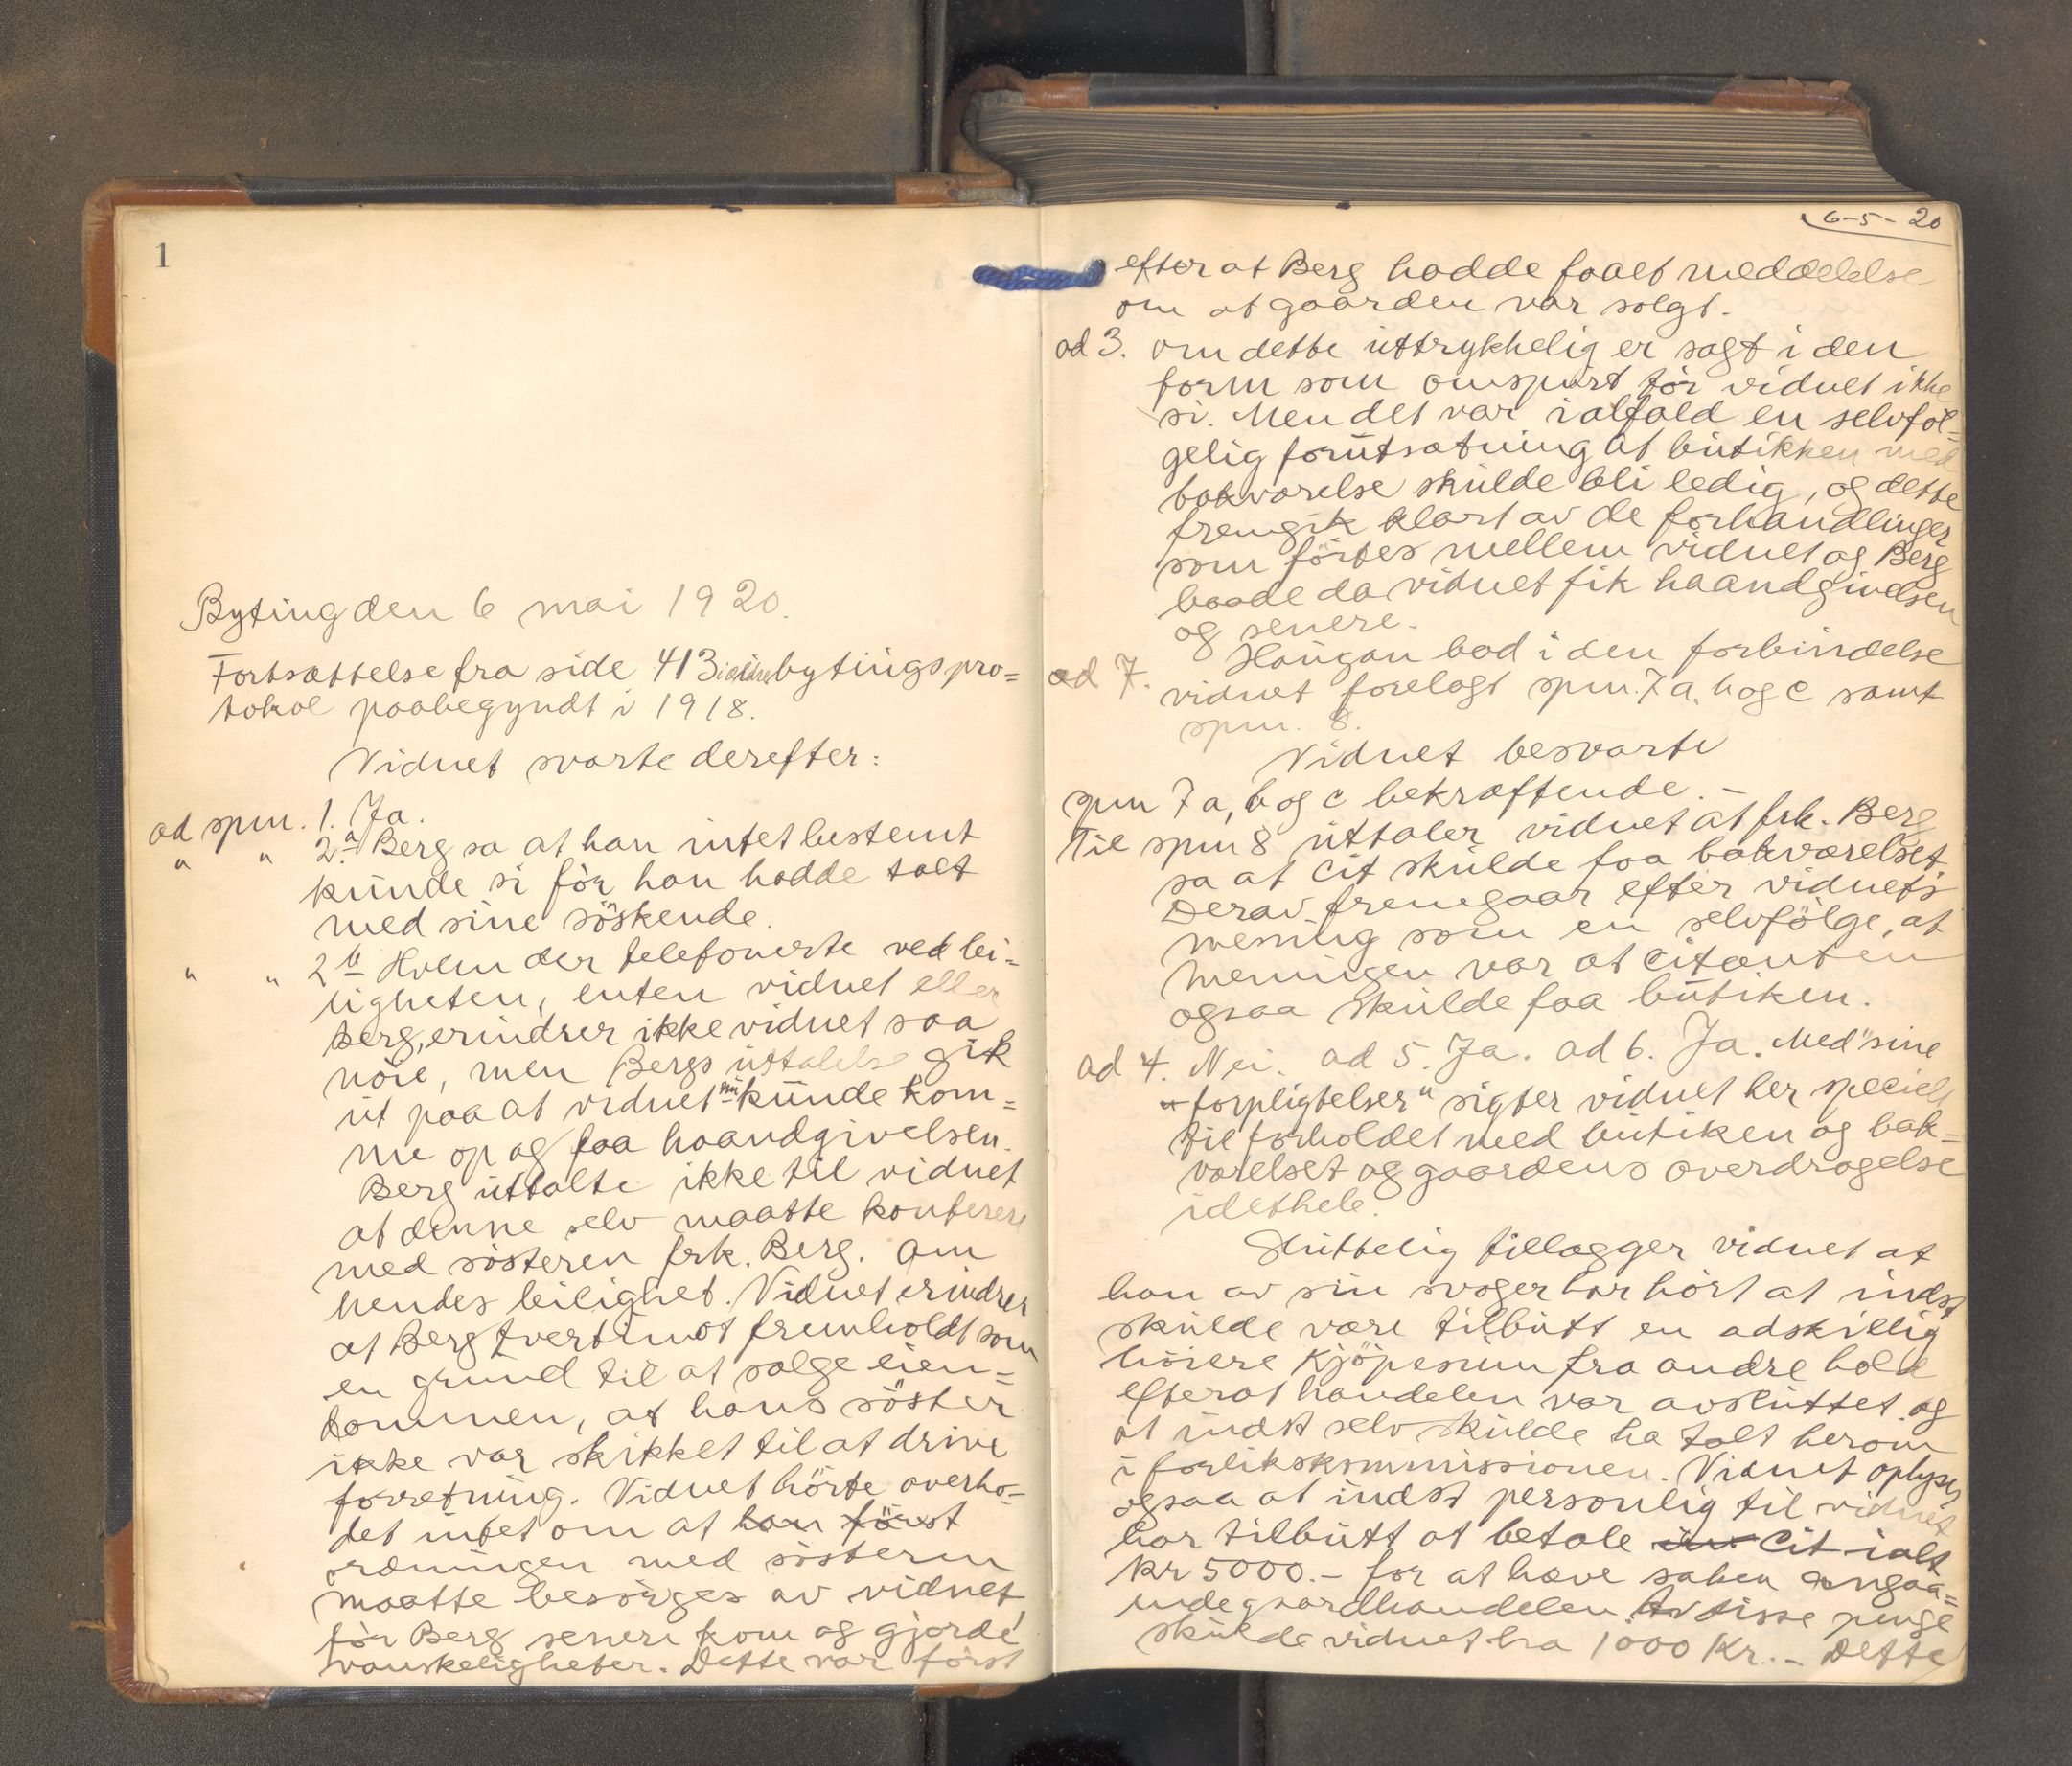 1
Byting den 6 mai 1920.
Fortsættelse fra side 413 i bytingspro=
tokol paabegyndt i 1918.
Vidnet svarte derefter:
ad spm. 1. Ja.
" " 2a Berg sa at han intet bestemt
kunde si før han hadde talt
med sine søskende.
" " 2b Hvem der telefonerte ved lei=
ligheten, enten vidnet eller
Berg, erindrer ikke vidnet saa
nøie, men Bergs uttalelse gik
ut paa at vidnet nu kunde kom=
me op og faa haandgivelsen.
Berg uttalte ikke til vidnet
at denne selv maatte konferere
med søsteren frk. Berg. om
hendes leilighet. Vidnet erindrer
at Berg tvertimot fremholdt som
en grund til at sælge eien=
dommen, at hans søster
ikke var skikket til at drive
forretning. Vidnet hørte overho=
det intet om at han først
ordningen med søsteren
maatte besørges av vidnet,
før Berg senere kom og gjorde
vanskeligheter. Dette var først
6-5-20
efter at Berg hadde faaet meddelelse
om at gaarden var solgt.
ad 3. om dette uttrykkelig er sagt i den
form som omspurt tør vidnet ikke
si. Men det var ialfald en selvføl=
gelig forutsætning at butikken med
bakværelse skulde bli ledig, og dette
fremgik klart av de forhandlinger
som førtes mellem vidnet og Berg
baade da vidnet fik haandgivelsen
og senere.
ad 7. Haugan bad i den forbindelse
vidnet forelagt spm. 7 a, b og c samt
spm. 8.
Vidnet besvarte
spm 7 a, b og c bekræftende. -
Til spm 8 uttaler vidnet at frk. Berg
sa at cit skulde faa bakværelset.
Derav fremgaar efter vidnets
mening som en selvfølge, at
meningen var at citanten
ogsaa skulde faa butiken.
ad 4. Nei. ad 5. Ja. ad 6. Ja. Med "sine
forpligtelser" sigter vidnet her specielt
til forholdet med butiken og bak=
værelset og gaardens overdragelse
idethele.
Sluttelig tillægger vidnet at
han av sin svoger har hørt at indst
skulde være tilbutt en adskillig
høiere kjøpesum fra andre hold
efterat handelen var avsluttet og
at indst selv skulde ha talt herom
i forlikskommissionen. Vidnet oplyser
ogsaa at indst personlig til vidnet
har tilbutt at betale cit ialt
kr 5000.- for at hæve saken angaa=
ende gaardhandelen. Av disse penge
skulde vidnet ha 1000 Kr. - Dette